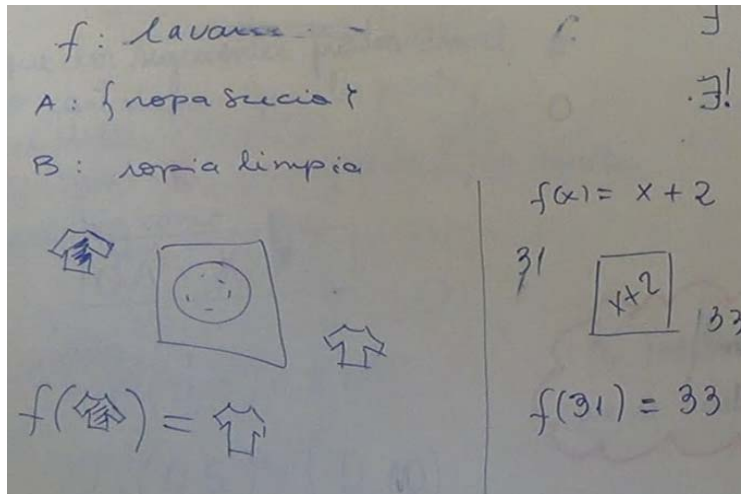 f: lavar
A: { ropa sucia }
B: ropia limpia
f( ) =
∃
∃!
f(x) = x + 2
31
x+2
33
f(31) = 33